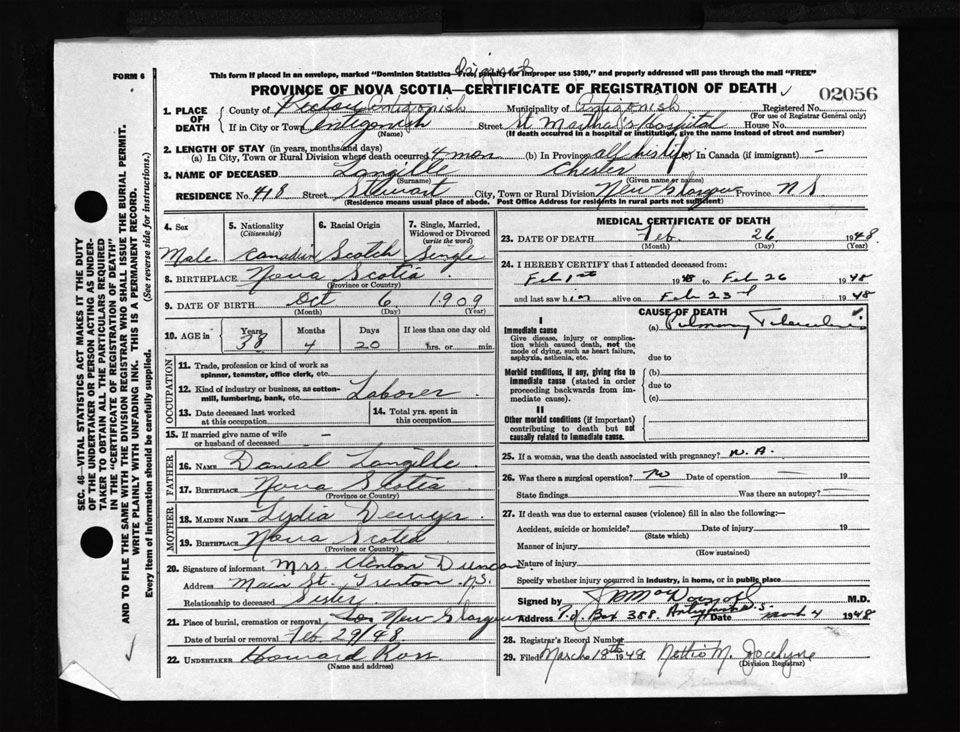 Original
FORM 6
This form if placed in an envelope, marked "Dominion Statistics—Free, penalty for improper use $300," and properly addressed will pass through the mail "FREE"
PROVINCE OF NOVA SCOTIA—CERTIFICATE OF REGISTRATION OF DEATH
02056
SEC. 46—VITAL STATISTICS ACT MAKES IT THE DUTY
OF THE UNDERTAKER OR PERSON ACTING AS UNDER-
TAKER TO OBTAIN ALL THE PARTICULARS REQUIRED
IN THE "CERTIFICATE OF REGISTRATION OF DEATH"
AND TO FILE THE SAME WITH THE DIVISION REGISTRAR WHO SHALL ISSUE THE BURIAL PERMIT.
WRITE PLAINLY WITH UNFADING INK. THIS IS A PERMANENT RECORD.
Every item of information should be carefully supplied. (See reverse side for instructions.)
1. PLACE OF DEATH
County of Pictou Antigonish Municipality of Antigonish Registered No.
(For use of Registrar General only)
If in City or Town Antigonish Street St Martha's Hospital House No.
(Name) (If death occurred in a hospital or institution, give the name instead of street and number)
2. LENGTH OF STAY (in years, months and days)
(a) In City, Town or Rural Division where death occurred 4 mon (b) In Province all his life (c) In Canada (if immigrant) —
3. NAME OF DECEASED Langille Chester
(Surname) (Given name or names)
RESIDENCE No. 418 Street Stewart City, Town or Rural Division New Glasgow Province N S
(Residence means usual place of abode. Post Office Address for residents in rural parts not sufficient)
4. Sex 5. Nationality (Citizenship) 6. Racial Origin 7. Single, Married, Widowed or Divorced (write the word)
Male Canadian Scotch Single
8. BIRTHPLACE Nova Scotia
(Province or Country)
9. DATE OF BIRTH Oct 6 1909
(Month) (Day) (Year)
10. AGE in Years Months Days If less than one day old
38 4 20 hrs. or min.
OCCUPATION
11. Trade, profession or kind of work as
spinner, teamster, office clerk, etc.
12. Kind of industry or business, as cotton-
mill, lumbering, bank, etc. Laborer
13. Date deceased last worked
at this occupation
14. Total yrs. spent in
this occupation
15. If married give name of wife
or husband of deceased —
FATHER
16. NAME Danial Langille
17. BIRTHPLACE Nova Scotia
(Province or Country)
MOTHER
18. MAIDEN NAME Lydia
19. BIRTHPLACE Nova Scotia
(Province or Country)
20. Signature of informant Mrs. Clinton Duncan
Address Main St. Trenton N.S.
Relationship to deceased Sister
21. Place of burial, cremation or removal New Glasgow
Date of burial or removal Feb 29/48
22. UNDERTAKER Howard Ross
(Name and address)
MEDICAL CERTIFICATE OF DEATH
23. DATE OF DEATH Feb. 26 1948
(Month) (Day) (Year)
24. I HEREBY CERTIFY that I attended deceased from:
Feb 1st 1948 to Feb 26 1948
and last saw him alive on Feb 23rd 1948
CAUSE OF DEATH
I
Immediate cause
Give disease, injury or complica-
tion which caused death, not the
mode of dying, such as heart failure,
asphyxia, asthenia, etc.
(a) Pulmonary Tuberculosis
due to
Morbid conditions, if any, giving rise to
immediate cause (stated in order
proceeding backwards from im-
mediate cause).
(b)
due to
(c)
II
Other morbid conditions (if important)
contributing to death but not
causally related to immediate cause.
25. If a woman, was the death associated with pregnancy? N. A.
26. Was there a surgical operation? No Date of operation 19
State findings Was there an autopsy?
27. If death was due to external causes (violence) fill in also the following:—
Accident, suicide or homicide? Date of injury 19
(State which)
Manner of injury
(How sustained)
Nature of injury
Specify whether injury occurred in industry, in home, or in public place
Signed by M.D.
Address P.O. Box 358, Antigonish N.S. Date March 4 1948
28. Registrar's Record Number
29. Filed March 18th 1948 Nettie M. Jocelyne
(Division Registrar)